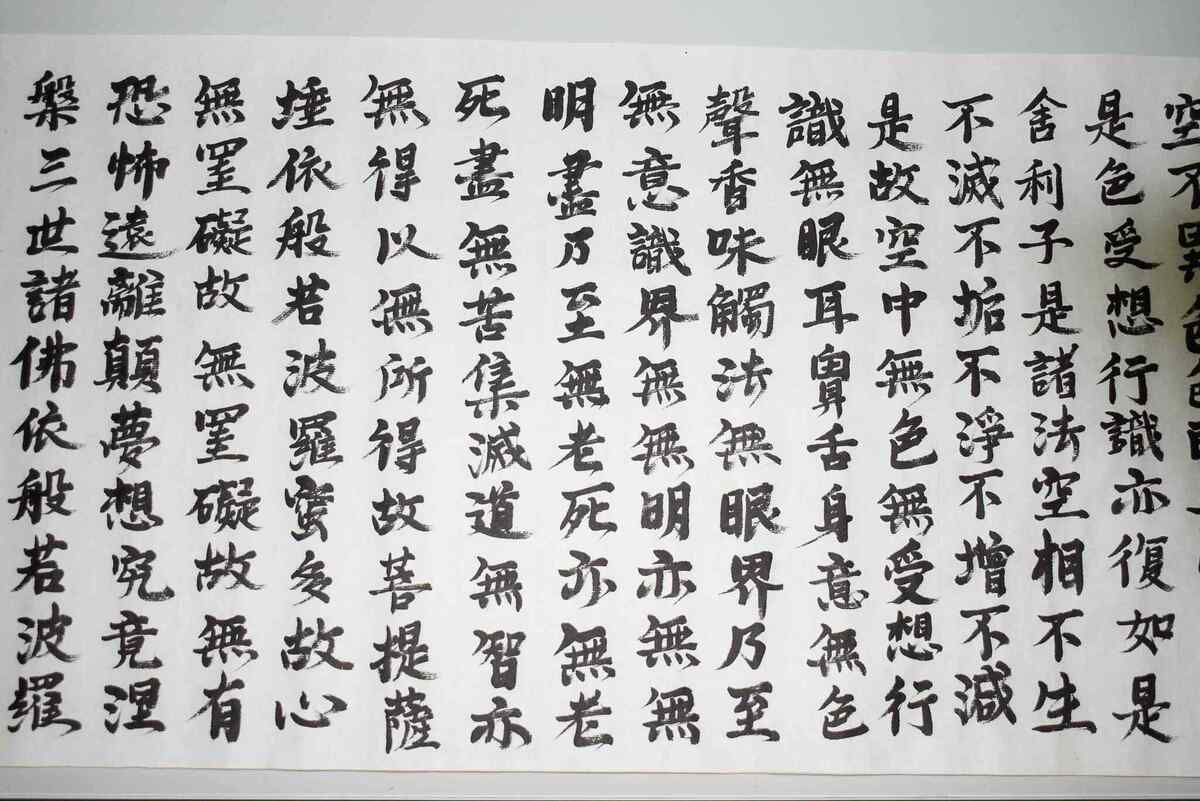 空不異色色
是色受想行識亦復如是
舍利子是諸法空相不生
不滅不垢不淨不增不減
是故空中無色無受想行
識無眼耳鼻舌身意無色
聲香味觸法無眼界乃至
無意識界無無明亦無無
明盡乃至無老死亦無老
死盡無苦集滅道無智亦
無得以無所得故菩提薩
埵依般若波羅蜜多故心
無罣礙故無罣礙故無有
恐怖遠離顛夢想究竟涅
槃三世諸佛依般若波羅